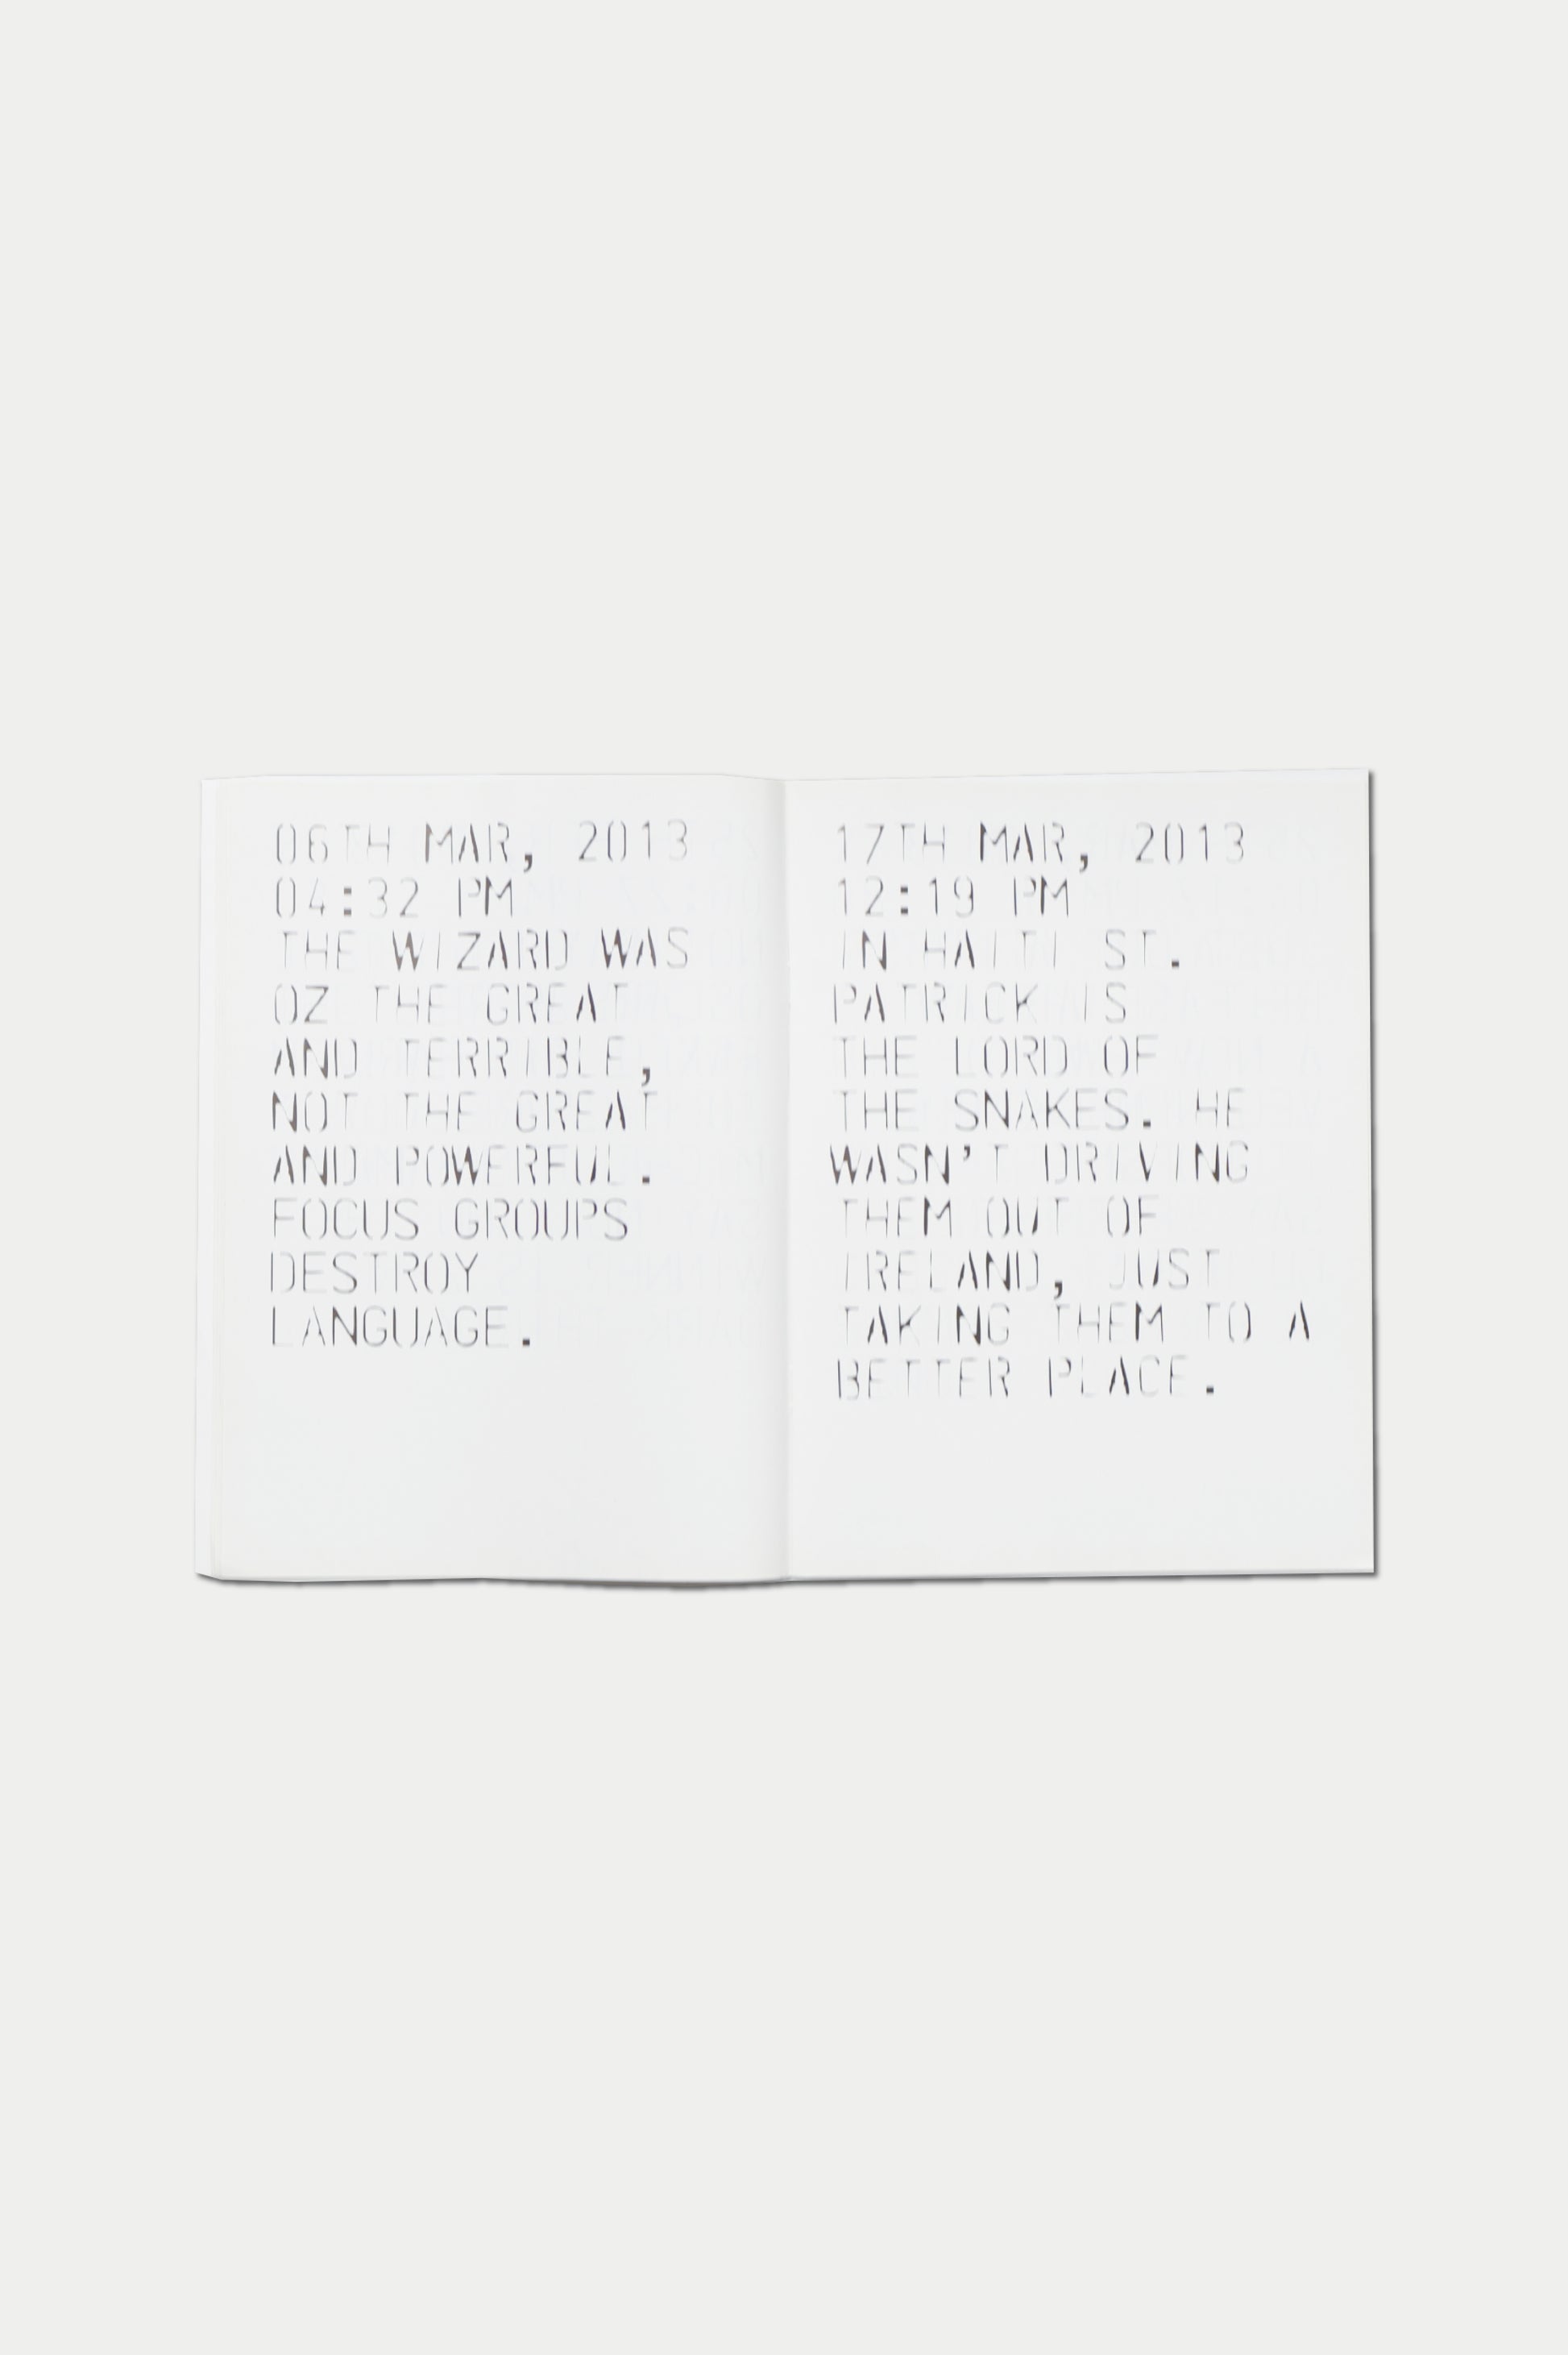 06TH MAR, 2013
04:32 PM
THE WIZARD WAS
OZ THE GREAT
AND TERRIBLE,
NOT THE GREAT
AND POWERFUL.
FOCUS GROUPS
DESTROY
LANGUAGE.
17TH MAR, 2013
12:19 PM
IN HAITI ST.
PATRICK IS
THE LORD OF
THE SNAKES. HE
WASN'T DRIVING
THEM OUT OF
IRELAND, JUST
TAKING THEM TO A
BETTER PLACE.